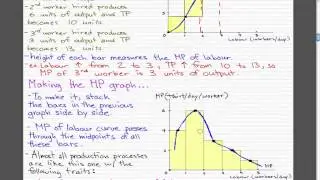 - 2nd worker hired produces
6 units of output and TP
becomes 10 units.
3rd worker hired produces
3 units of output and TP
becomes 13 units.
- Height of each bar measures the MP of labour.
ex Labour ↑ from 2 to 3, TP ↑ from 10 to 13, so
MP of 3rd worker is 3 units of output.
Making the MP graph...
- To make it, stack
the bars in the previous
graph side by side.
- MP of labour curve passes
through the midpoints of all
these bars.
- Almost all production processes
are like this one w/ the
following traits:
Labour (workers/day)
MP (unit/day/worker)
MP
Labour (workers/day)